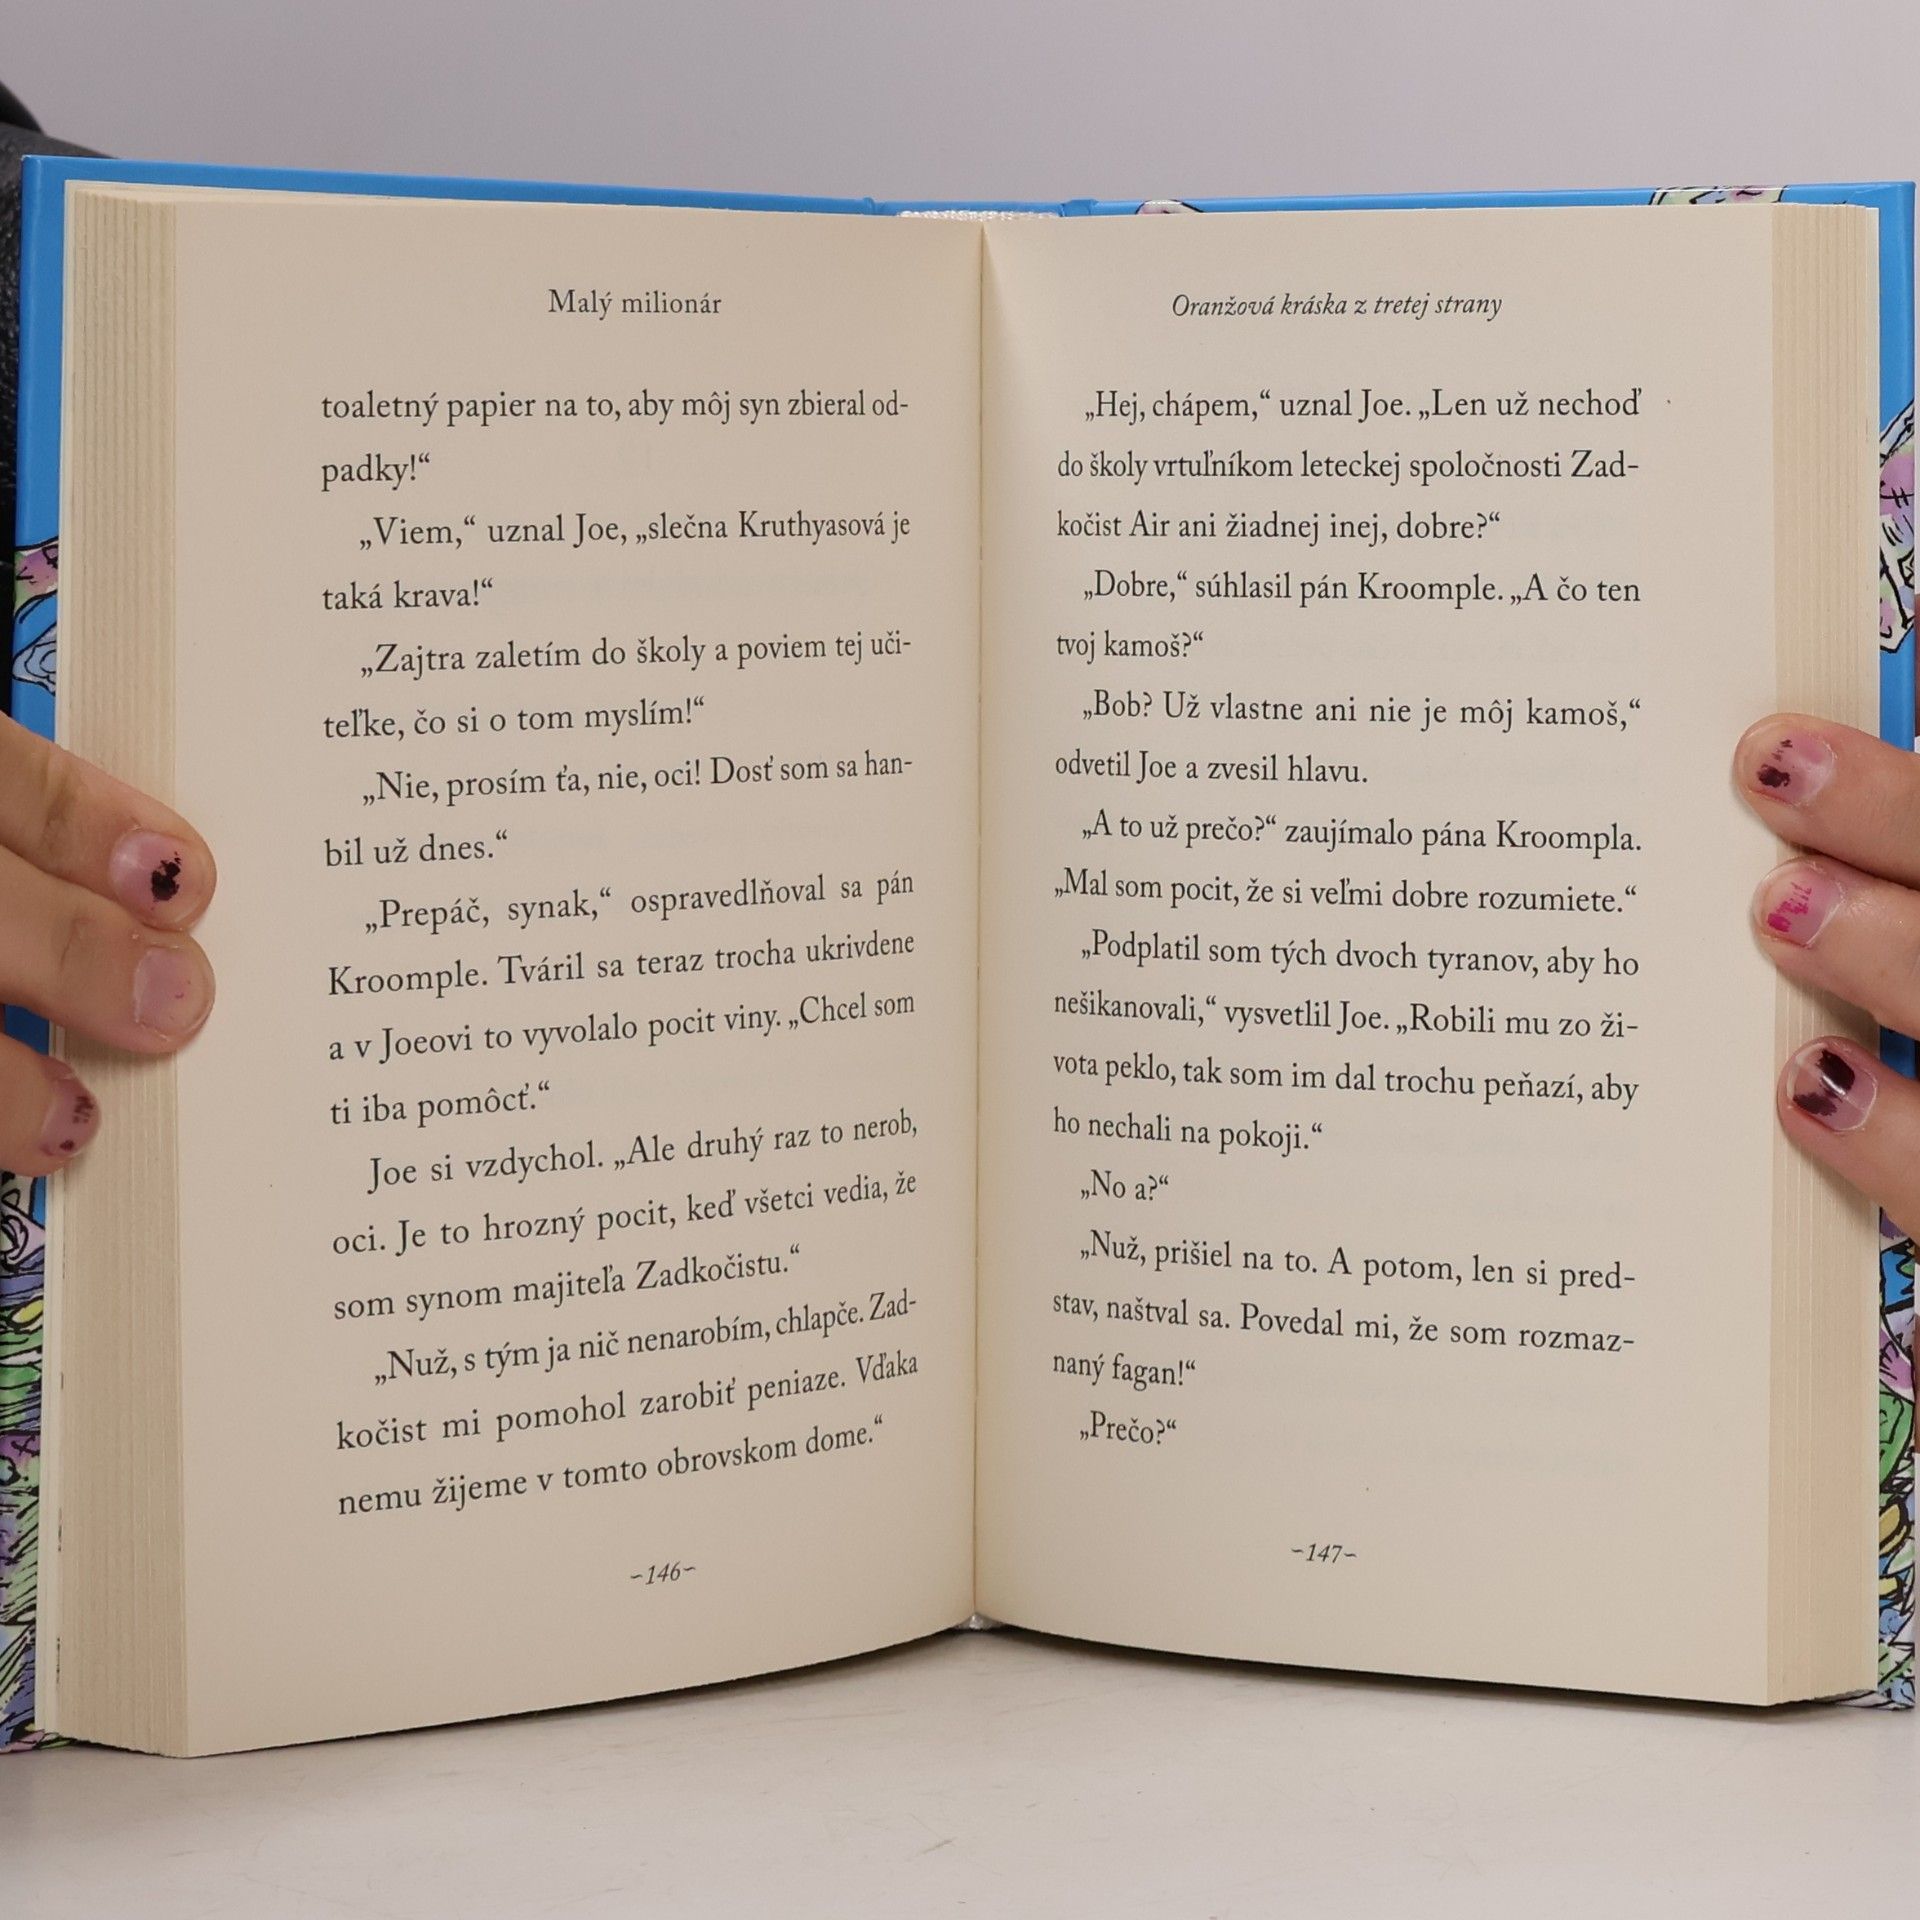 Malý milionár
toaletný papier na to, aby môj syn zbieral od-
padky!“
„Viem,“ uznal Joe, „slečna Kruthyasová je
taká krava!“
„Zajtra zaletím do školy a poviem tej uči-
teľke, čo si o tom myslím!“
„Nie, prosím ťa, nie, oci! Dosť som sa han-
bil už dnes.“
„Prepáč, synak,“ ospravedlňoval sa pán
Kroomple. Tváril sa teraz trocha ukrivdene
a v Joeovi to vyvolalo pocit viny. „Chcel som
ti iba pomôcť.“
Joe si vzdychol. „Ale druhý raz to nerob,
oci. Je to hrozný pocit, keď všetci vedia, že
som synom majiteľa Zadkočistu.“
„Nuž, s tým ja nič nenarobím, chlapče. Zad-
kočist mi pomohol zarobiť peniaze. Vďaka
nemu žijeme v tomto obrovskom dome.“
~146~
Oranžová kráska z tretej strany
„Hej, chápem,“ uznal Joe. „Len už nechoď
do školy vrtuľníkom leteckej spoločnosti Zad-
kočist Air ani žiadnej inej, dobre?“
„Dobre,“ súhlasil pán Kroomple. „A čo ten
tvoj kamoš?“
„Bob? Už vlastne ani nie je môj kamoš,“
odvetil Joe a zvesil hlavu.
„A to už prečo?“ zaujímalo pána Kroompla.
„Mal som pocit, že si veľmi dobre rozumiete.“
„Podplatil som tých dvoch tyranov, aby ho
nešikanovali,“ vysvetlil Joe. „Robili mu zo ži-
vota peklo, tak som im dal trochu peňazí, aby
ho nechali na pokoji.“
„No a?“
„Nuž, prišiel na to. A potom, len si pred-
stav, naštval sa. Povedal mi, že som rozmaz-
naný fagan!“
„Prečo?“
~147~